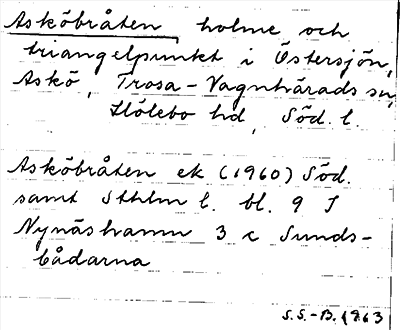 Asköbråten, holme och
triangelpunkt i Östersjön,
Askö, Trosa-Vagnhärads sn,
Hölebo hd, Söd. l.
Asköbråten ek (1960) Söd.
samt Sthlm l. bl. 9 I
Nynäshamn 3 c Sunds-
bådarna
S.S.-B. 1963